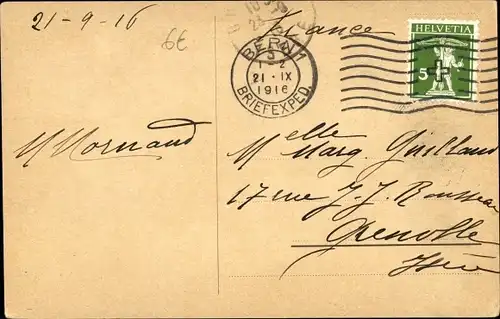 21-9-16
6€
France
HELVETIA
5
BERN 1
1-2
21 · IX
1916
BRIEFEXPED.
M Mornand
Melle
Marg. Guilland
17 rue J. J. Rousseau
Grenoble
Isère